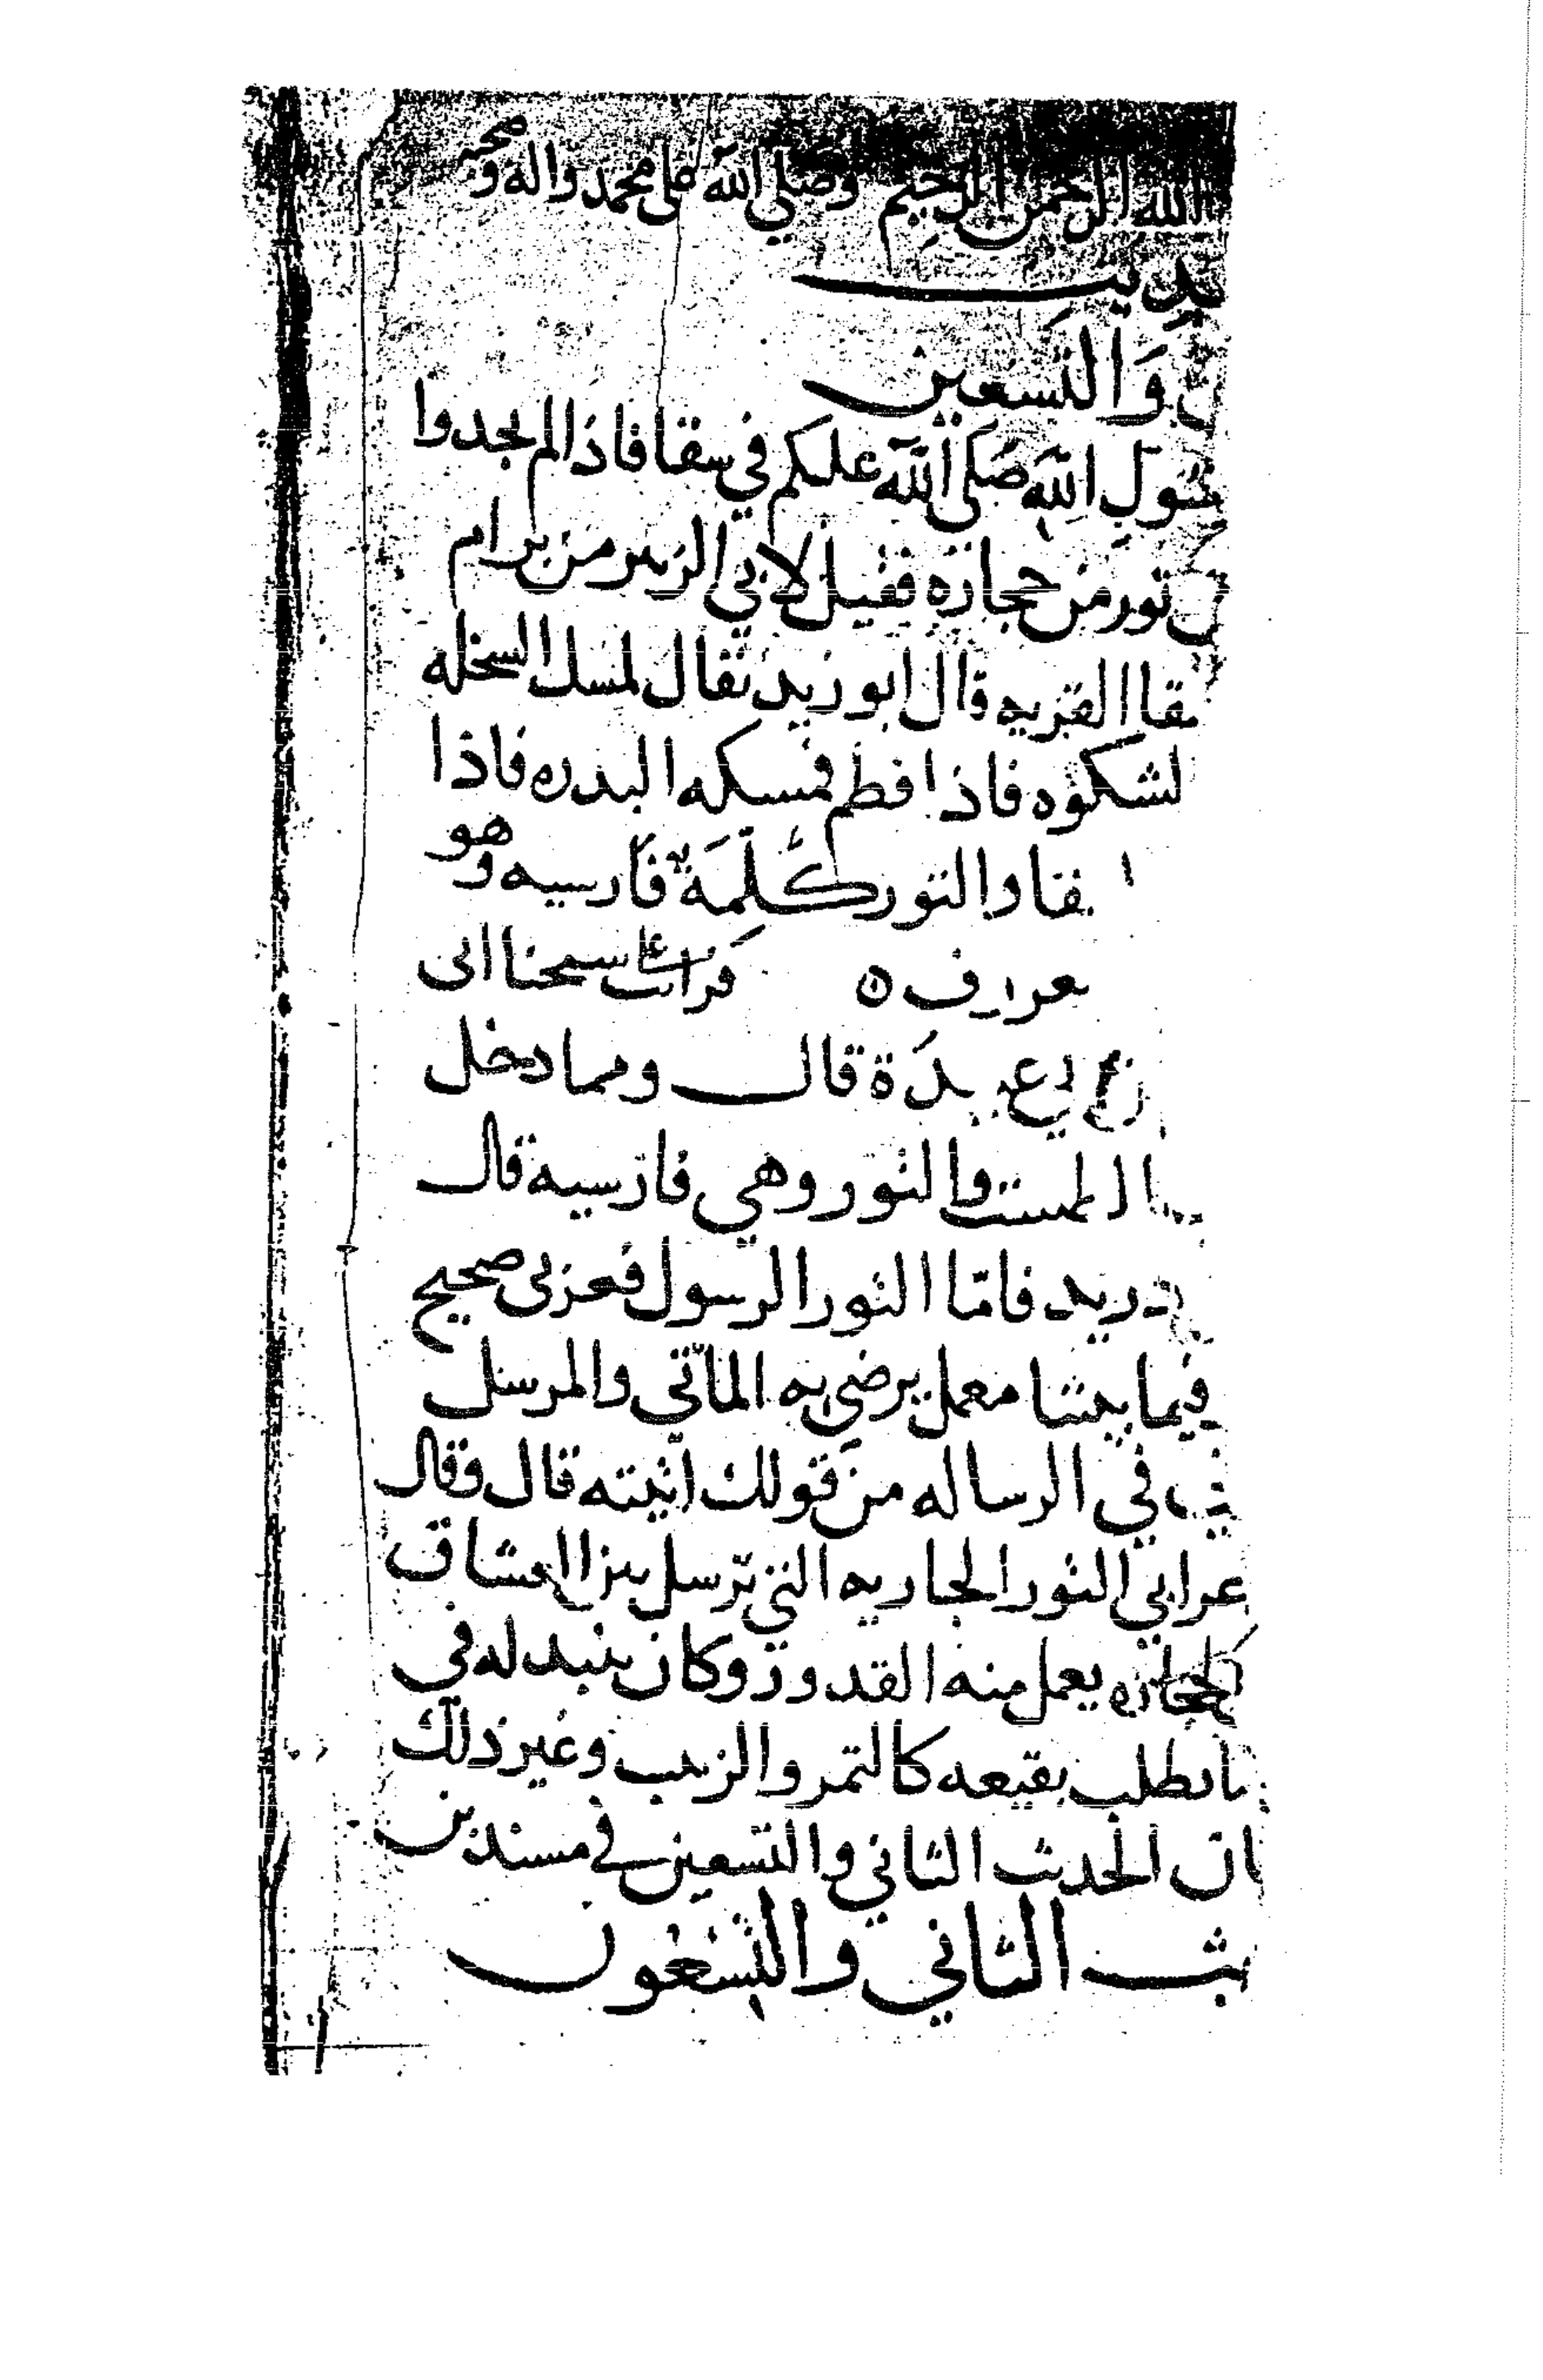 الله الرحمن الرحيم وصلي الله على محمد واله وصحبه
والتسعين
سول الله صلى الله عليكم في سقا فاذا لم يجدوا
تور من حجاره فقيل لابي الزبير من برام
القربه قال ابو زيد يقال لمسك السخله
لشكوه فاذا فطم فمسكه البدره فاذا
والتور كلمة فارسيه وهو
قرات على سحنا ابى
قال ومما دخل
الطست والتور وهي فارسيه قال
دريد فاما التور الرسول فعربى صحيح
فيما بيننا معمل يرضى به الماتي والمرسل
في الرساله من قولك اتيته قال وقال
عرابي التور الجاريه التي ترسل بين العشاق
الحجاره يعمل منه القدور وكان ينبد له في
نقيعه كالتمر والزبيب وغير ذلك
الحدث الثاني والتسعين في مسند بن
الثاني والتسعون